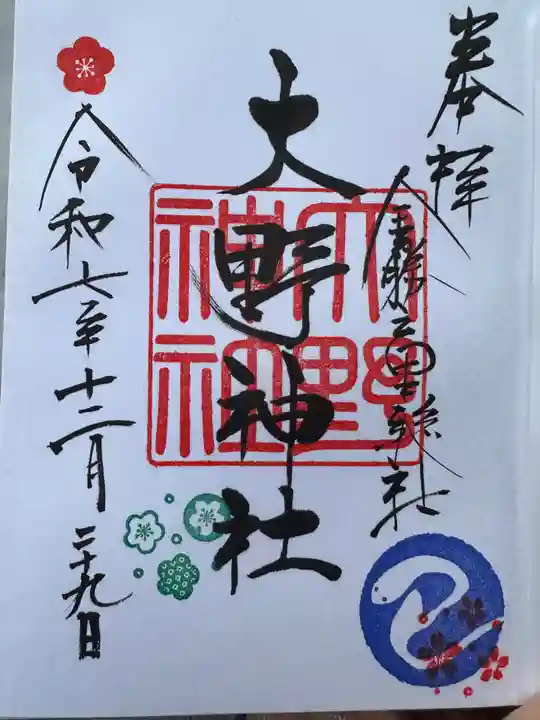 奉拝
大野神社
大野
神社
令和七年十二月二十九日